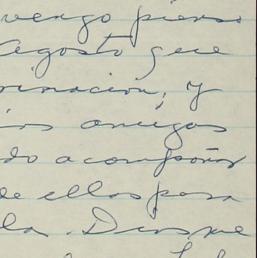 vengo pienso
Agosto que
rinación, y
ios amigos
do acompañar
de ellos para
la. Dios me